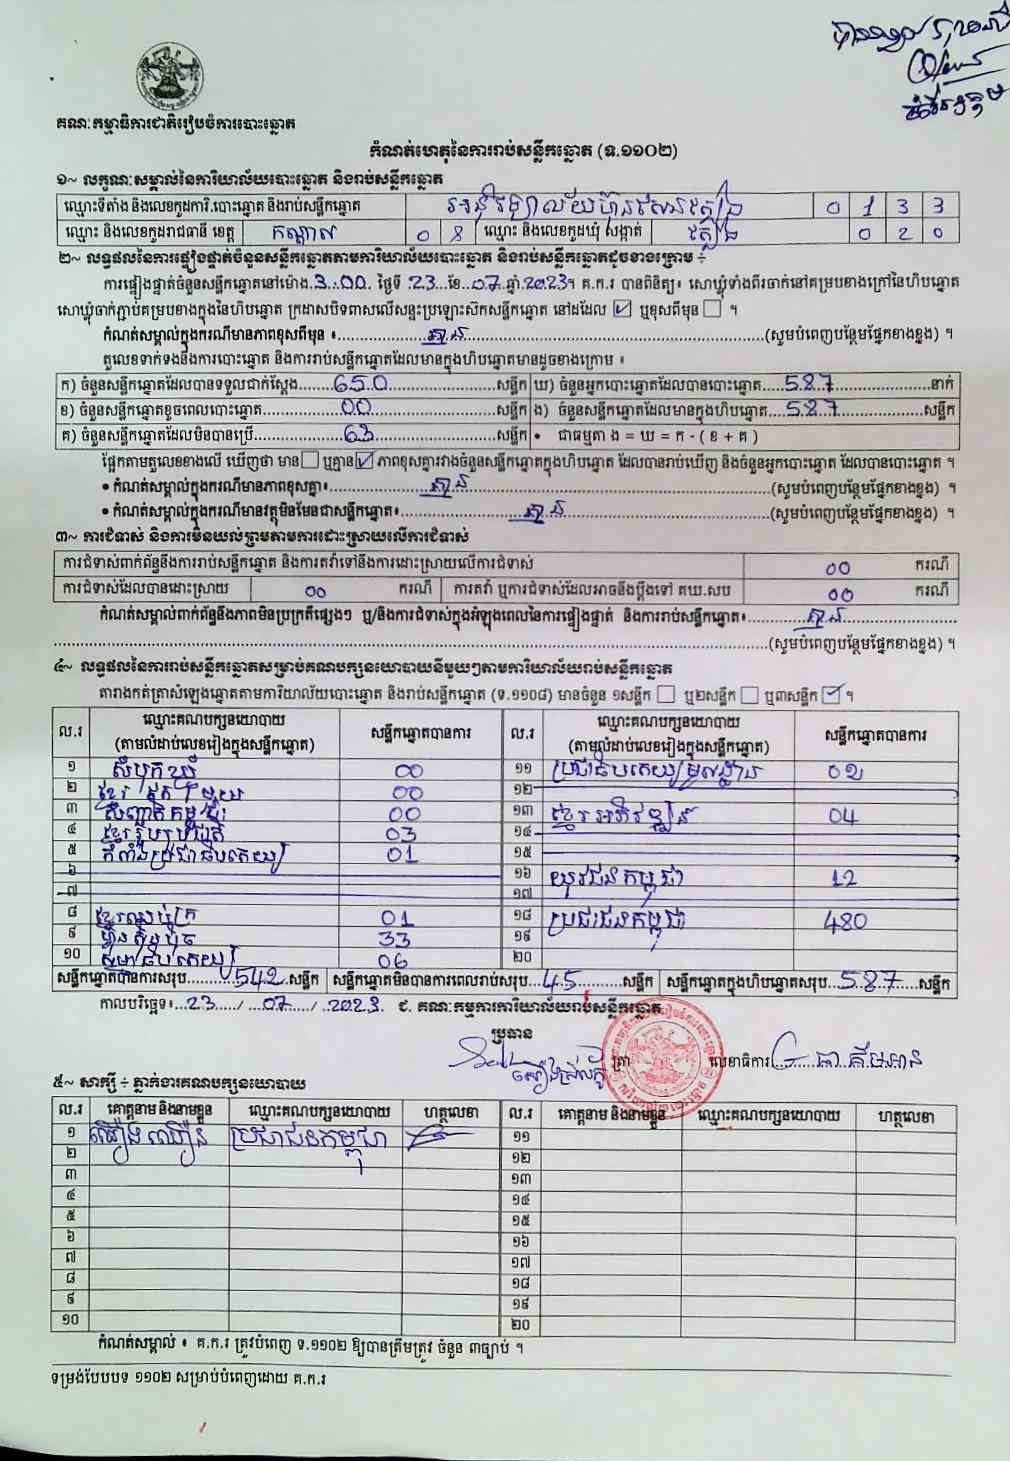 គណៈកម្មាធិការជាតិរៀបចំការបោះឆ្នោត
កំណត់ហេតុនៃការរាប់សន្លឹកឆ្នោត (ទ.១១០២)
១~ លក្ខណៈសម្គាល់នៃការិយាល័យបោះឆ្នោត និងរាប់សន្លឹកឆ្នោត
ឈ្មោះទីតាំង និងលេខកូដការិ.បោះឆ្នោត និងរាប់សន្លឹកឆ្នោត 0 1 3 3
ឈ្មោះ និងលេខកូដរាជធានី ខេត្ត កណ្តាល 0 8 ឈ្មោះ និងលេខកូដឃុំ សង្កាត់ 0 2 0
២~ លទ្ធផលនៃការផ្ទៀងផ្ទាត់ចំនួនសន្លឹកឆ្នោតតាមការិយាល័យបោះឆ្នោត និងរាប់សន្លឹកឆ្នោតដូចខាងក្រោម ÷
ការផ្ទៀងផ្ទាត់ចំនួនសន្លឹកឆ្នោតនៅម៉ោង 3:00 ថ្ងៃទី 23 ខែ 07 ឆ្នាំ 2023។ គ.ក.រ បានពិនិត្យ៖ សោឃ្លុំទាំងពីរចាក់នៅគម្របខាងក្រៅនៃហិបឆ្នោត
សោឃ្លុំចាក់ភ្ជាប់គម្របខាងក្នុងនៃហិបឆ្នោត ក្រដាសបិទពាសលើសន្ទះប្រឡោះស៊កសន្លឹកឆ្នោត នៅដដែល ☑ ឬខុសពីមុន ☐ ។
កំណត់សម្គាល់ក្នុងករណីមានភាពខុសពីមុន ៖ គ្មាន (សូមបំពេញបន្ថែមផ្នែកខាងខ្នង) ។
តួលេខទាក់ទងនឹងការបោះឆ្នោត និងការរាប់សន្លឹកឆ្នោតដែលមានក្នុងហិបឆ្នោតមានដូចខាងក្រោម ៖
ក) ចំនួនសន្លឹកឆ្នោតដែលបានទទួលជាក់ស្តែង 650 សន្លឹក ឃ) ចំនួនអ្នកបោះឆ្នោតដែលបានបោះឆ្នោត 587 នាក់
ខ) ចំនួនសន្លឹកឆ្នោតខូចពេលបោះឆ្នោត 00 សន្លឹក ង) ចំនួនសន្លឹកឆ្នោតដែលមានក្នុងហិបឆ្នោត 587 សន្លឹក
គ) ចំនួនសន្លឹកឆ្នោតដែលមិនបានប្រើ 63 សន្លឹក • ជាធម្មតា ង = ឃ = ក - ( ខ + គ )
ផ្អែកតាមតួលេខខាងលើ ឃើញថា មាន ☐ ឬគ្មាន ☑ ភាពខុសគ្នារវាងចំនួនសន្លឹកឆ្នោតក្នុងហិបឆ្នោត ដែលបានរាប់ឃើញ និងចំនួនអ្នកបោះឆ្នោត ដែលបានបោះឆ្នោត ។
• កំណត់សម្គាល់ក្នុងករណីមានភាពខុសគ្នា៖ គ្មាន (សូមបំពេញបន្ថែមផ្នែកខាងខ្នង) ។
• កំណត់សម្គាល់ក្នុងករណីមានវត្ថុមិនមែនជាសន្លឹកឆ្នោត៖ គ្មាន (សូមបំពេញបន្ថែមផ្នែកខាងខ្នង) ។
៣~ ការជំទាស់ និងការមិនយល់ព្រមតាមការដោះស្រាយលើការជំទាស់
ការជំទាស់ពាក់ព័ន្ធនឹងការរាប់សន្លឹកឆ្នោត និងការតវ៉ាទៅនឹងការដោះស្រាយលើការជំទាស់ 00 ករណី
ការជំទាស់ដែលបានដោះស្រាយ 00 ករណី ការតវ៉ា ឬការជំទាស់ដែលអាចនឹងប្តឹងទៅ គឃ.សប 00 ករណី
កំណត់សម្គាល់ពាក់ព័ន្ធនឹងភាពមិនប្រក្រតីផ្សេងៗ ឬ/និងការជំទាស់ក្នុងអំឡុងពេលនៃការផ្ទៀងផ្ទាត់ និងការរាប់សន្លឹកឆ្នោត៖ គ្មាន
(សូមបំពេញបន្ថែមផ្នែកខាងខ្នង) ។
៤~ លទ្ធផលនៃការរាប់សន្លឹកឆ្នោតសម្រាប់គណបក្សនយោបាយនីមួយៗតាមការិយាល័យរាប់សន្លឹកឆ្នោត
តារាងកត់ត្រាសំឡេងឆ្នោតតាមការិយាល័យបោះឆ្នោត និងរាប់សន្លឹកឆ្នោត (ទ.១១០៨) មានចំនួន ១សន្លឹក ☐ ឬ២សន្លឹក ☐ ឬ៣សន្លឹក ☑ ។
ល.រ ឈ្មោះគណបក្សនយោបាយ (តាមលំដាប់លេខរៀងក្នុងសន្លឹកឆ្នោត) សន្លឹកឆ្នោតបានការ ល.រ ឈ្មោះគណបក្សនយោបាយ (តាមលំដាប់លេខរៀងក្នុងសន្លឹកឆ្នោត) សន្លឹកឆ្នោតបានការ
១ សំបុកឃ្មុំ 00 ១១ 02
២ 00 ១២
៣ 00 ១៣ ខ្មែរអភិវឌ្ឍន៍ 04
៤ ខ្មែររួបរួមជាតិ 03 ១៤
៥ កំលាំងប្រជាធិបតេយ្យ 01 ១៥
៦ ១៦ យុវជនកម្ពុជា 12
៧ ១៧
៨ ខ្មែរឈប់ក្រ 01 ១៨ ប្រជាជនកម្ពុជា 480
៩ ហ៊្វុនស៊ិនប៉ិច 33 ១៩
១០ 06 ២០
សន្លឹកឆ្នោតបានការសរុប 542 សន្លឹក សន្លឹកឆ្នោតមិនបានការពេលរាប់សរុប 45 សន្លឹក សន្លឹកឆ្នោតក្នុងហិបឆ្នោតសរុប 587 សន្លឹក
កាលបរិច្ឆេទ៖ 23 / 07 / 2023 ជ. គណៈកម្មការការិយាល័យរាប់សន្លឹកឆ្នោត
ប្រធាន
ត្រា លេខាធិការ
៥~ សាក្សី ÷ ភ្នាក់ងារគណបក្សនយោបាយ
ល.រ គោត្តនាម និងនាមខ្លួន ឈ្មោះគណបក្សនយោបាយ ហត្ថលេខា ល.រ គោត្តនាម និងនាមខ្លួន ឈ្មោះគណបក្សនយោបាយ ហត្ថលេខា
១ ប្រជាជនកម្ពុជា ១១
២ ១២
៣ ១៣
៤ ១៤
៥ ១៥
៦ ១៦
៧ ១៧
៨ ១៨
៩ ១៩
១០ ២០
កំណត់សម្គាល់ ៖ គ.ក.រ ត្រូវបំពេញ ទ.១១០២ ឱ្យបានត្រឹមត្រូវ ចំនួន ៣ច្បាប់ ។
ទម្រង់បែបបទ ១១០២ សម្រាប់បំពេញដោយ គ.ក.រ